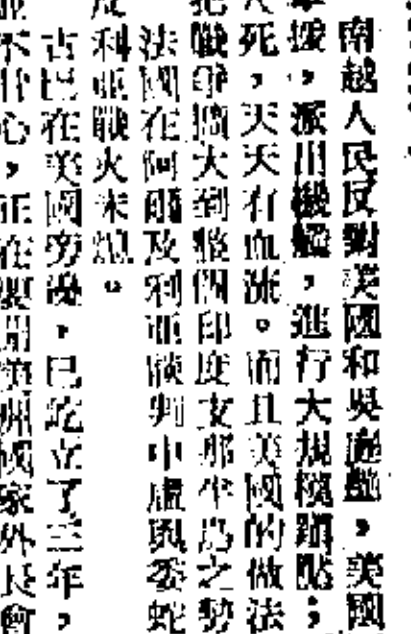 南越人民反對美國和吳庭艷，美國
援，派出機艦，進行大規模蹓點；
死，天天有血流。而且美國的做法
戰爭擴大到整個印度支那半島之勢
法國在阿爾及利亞談判中虛與委蛇
利亞戰火未熄。
古巴在美國旁邊，已屹立了三年，
不甘心，正在製開美洲國家外長會